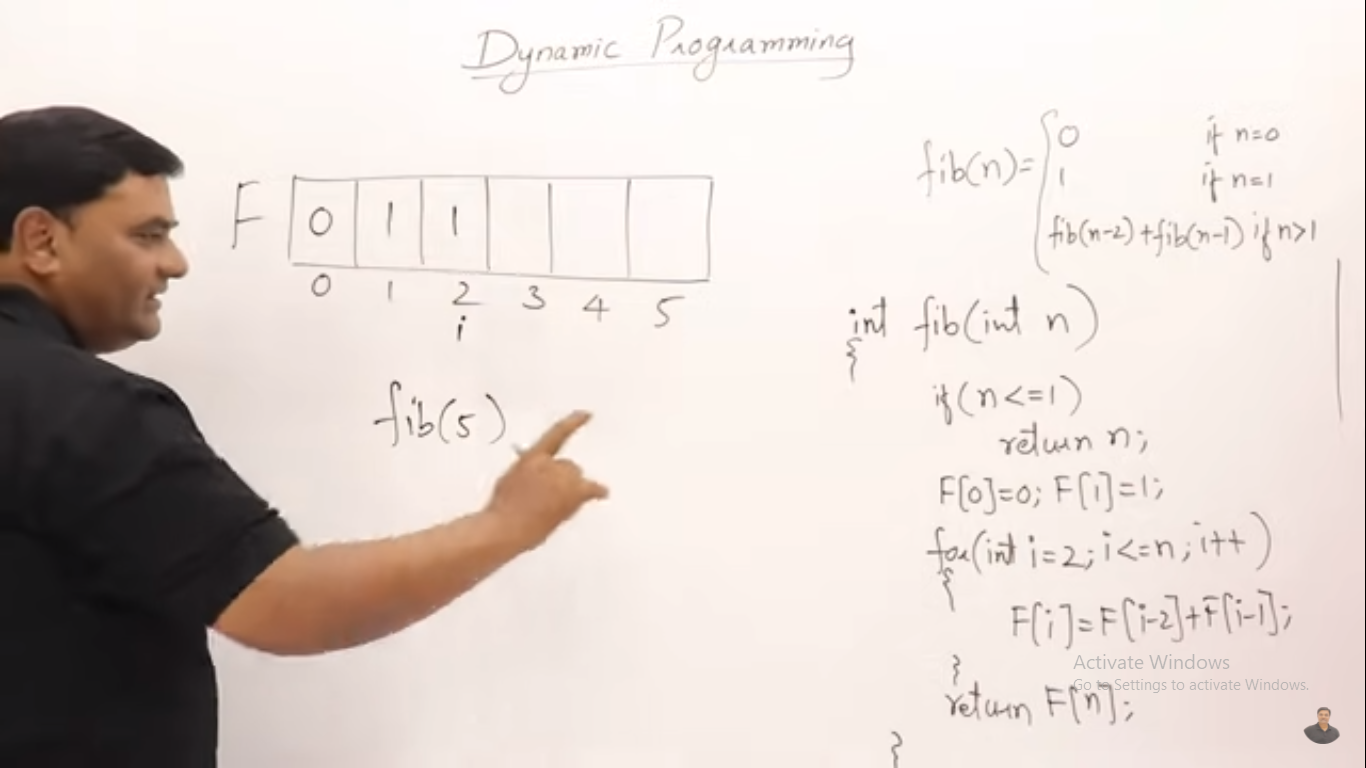 Dynamic Programming
F 0 1 1
0 1 2 3 4 5
i
fib(5)
fib(n)= { 0 if n=0
1 if n=1
fib(n-2)+fib(n-1) if n>1
int fib(int n)
{
if(n<=1)
return n;
F[0]=0; F[1]=1;
for(int i=2; i<=n; i++)
{
F[i]=F[i-2]+F[i-1];
}
return F[n];
}
Activate Windows
Go to Settings to activate Windows.